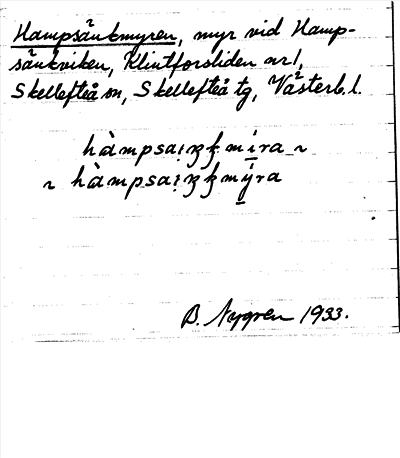 Hampsänkmyren, myr vid Hamp-
sänkviken, Klintforsliden nr 1,
Skellefteå sn, Skellefteå tg, Västerb. l.
hàmpsaịŋk̭mi̲ra ~
~ hàmpsaịŋk̭mý̲ra
B. Nygren 1933.